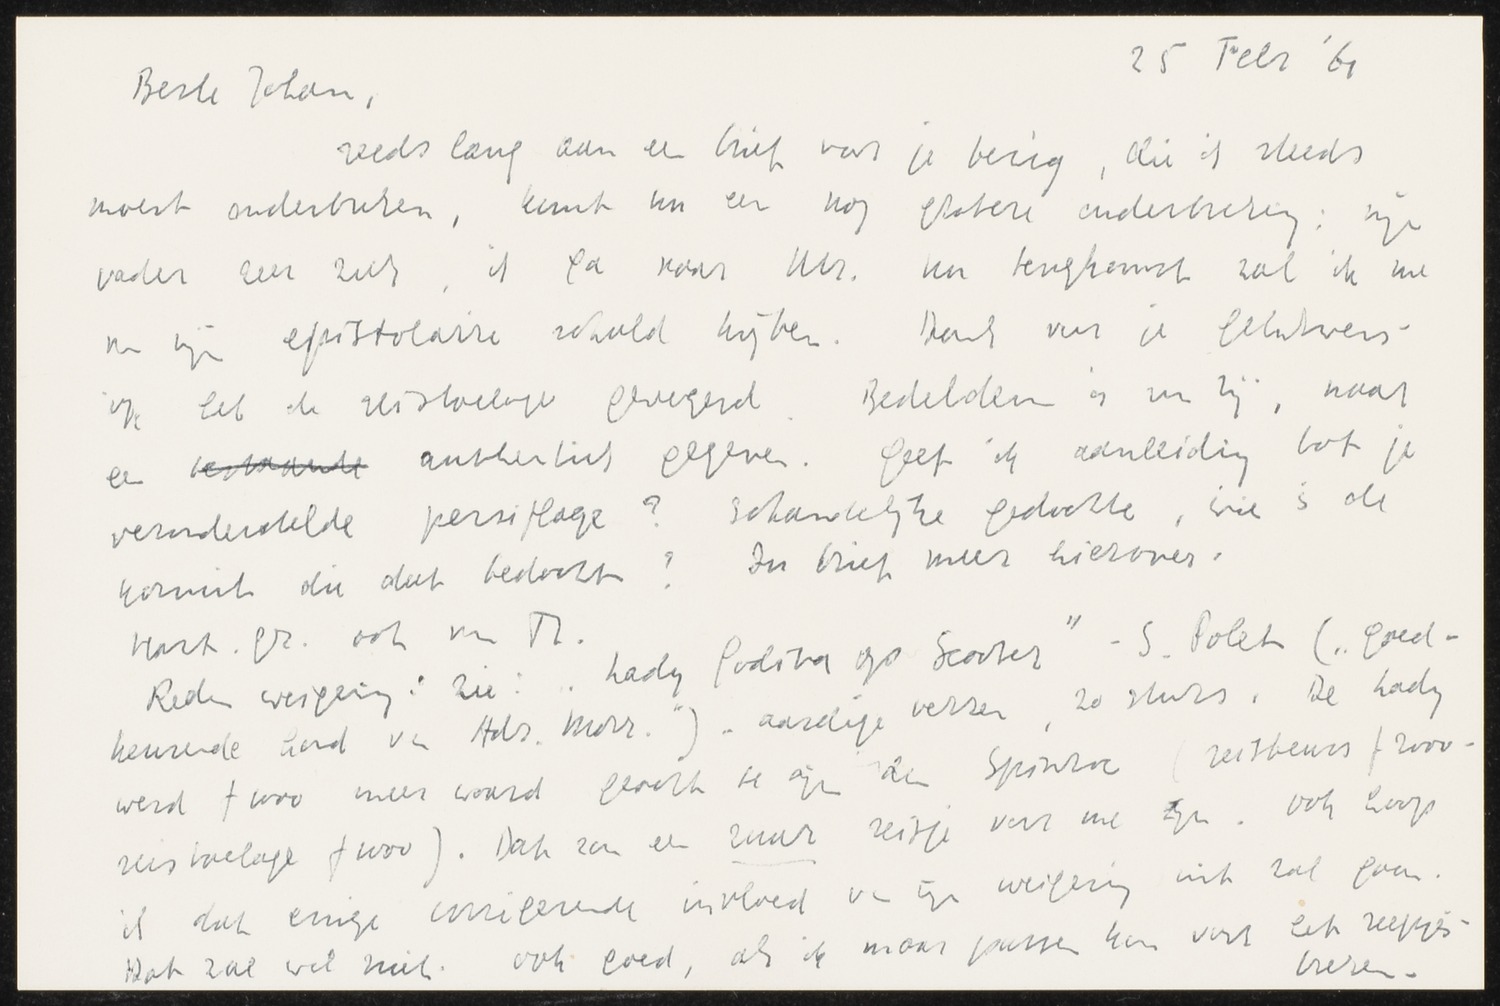 25 Febr '61
Beste Johan,
reeds lang aan een brief voor je bezig, die ik steeds
moest onderbreken, komt nu een nog grotere onderbreking: mijn
vader zeer ziek, ik ga naar Utr. Na terugkomst zal ik me
van mijn epistolaire schuld kwijten. Dank voor je gelukwens -
ik heb de reistoelage geweigerd. Bedeldem is van mij, naar
een bestaande authentiek gegeven. Geef ik aanleiding tot je
veronderstelde persiflage? Schandelijke gedachte, wie is de
die dat bedacht? In brief meer hierover.
Hart. gr. ook van Th.
Reden weigering: zie: „Lady Godiva op Scooter" - S. Polet („goed-
keurende hond van Adr. Morr.") - aardige verzen, zo stuurs. De Lady
werd f 1000 meer waard geacht te zijn dan Spinroc (reisbeurs f 2000 -
reistoelage f 1000). Dat zou een zuur reisje voor me zijn. Ook hoop
ik dat enige corrigerende invloed van mijn weigering uit zal gaan.
Dat zal wel niet. Ook goed, als ik maar passen kan voor het reepjes-
breken -